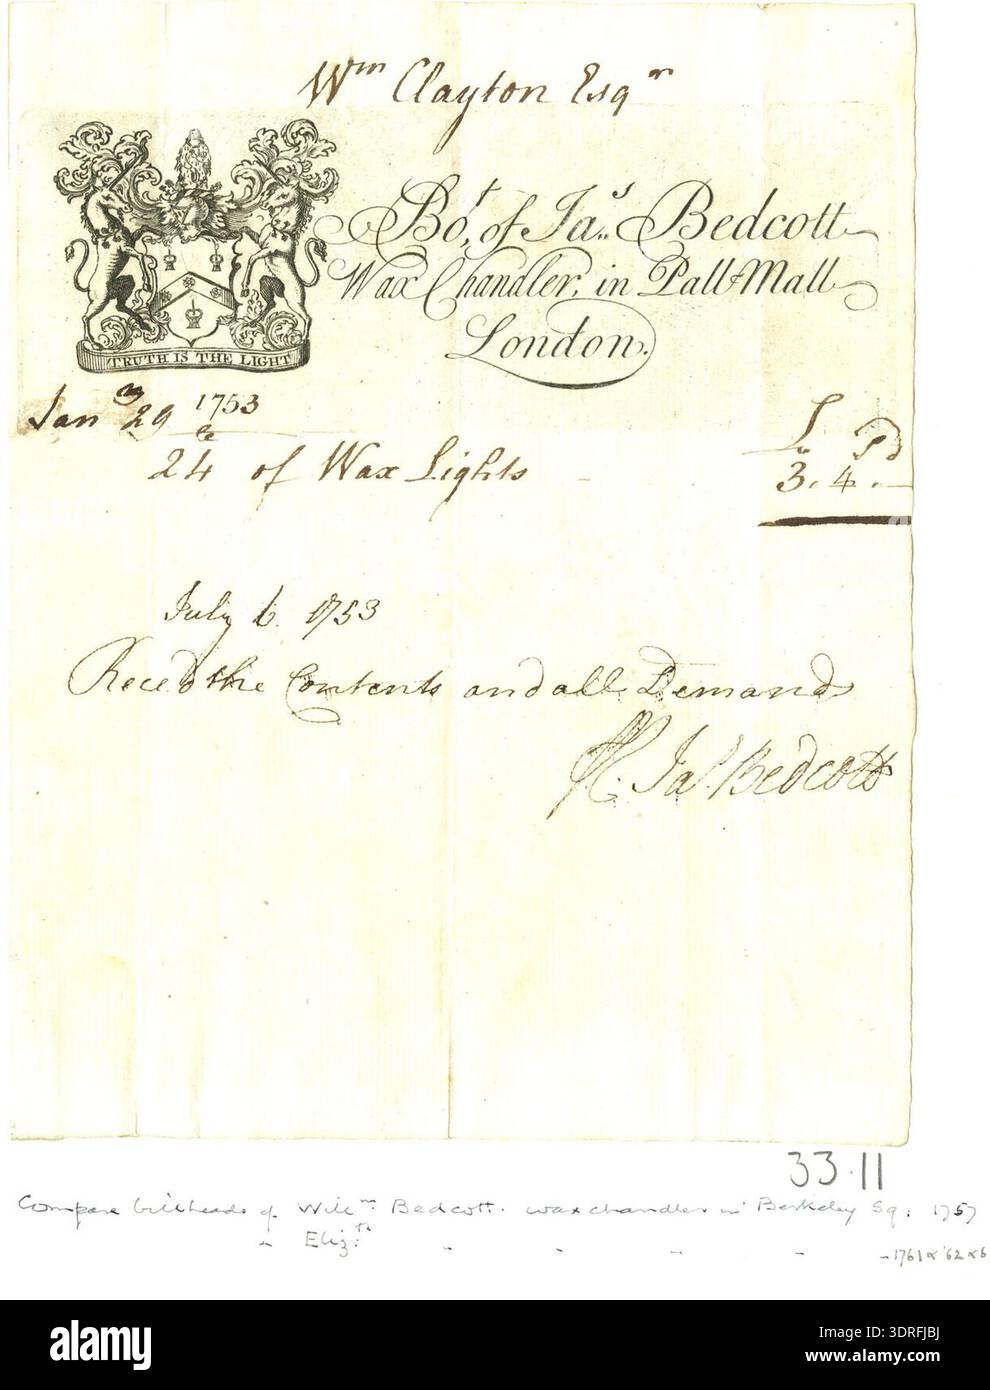 Wm Clayton Esqr
Bot. of Jas. Bedcott
Wax Chandler, in Pall Mall
London.
TRUTH IS THE LIGHT
Jan 29 1753
24 le of Wax Lights - 3. 4. —
July 6. 1753
Reced the Contents and all Demands
Jas Bedcott
33.11
Compare billheads of Willm Bedcott. waxchandler in Berkeley Sq: 1757
" Elizth - - - - - 1761 & '62 & 6
alamy
Image ID: 3DRFJBJ
www.alamy.com